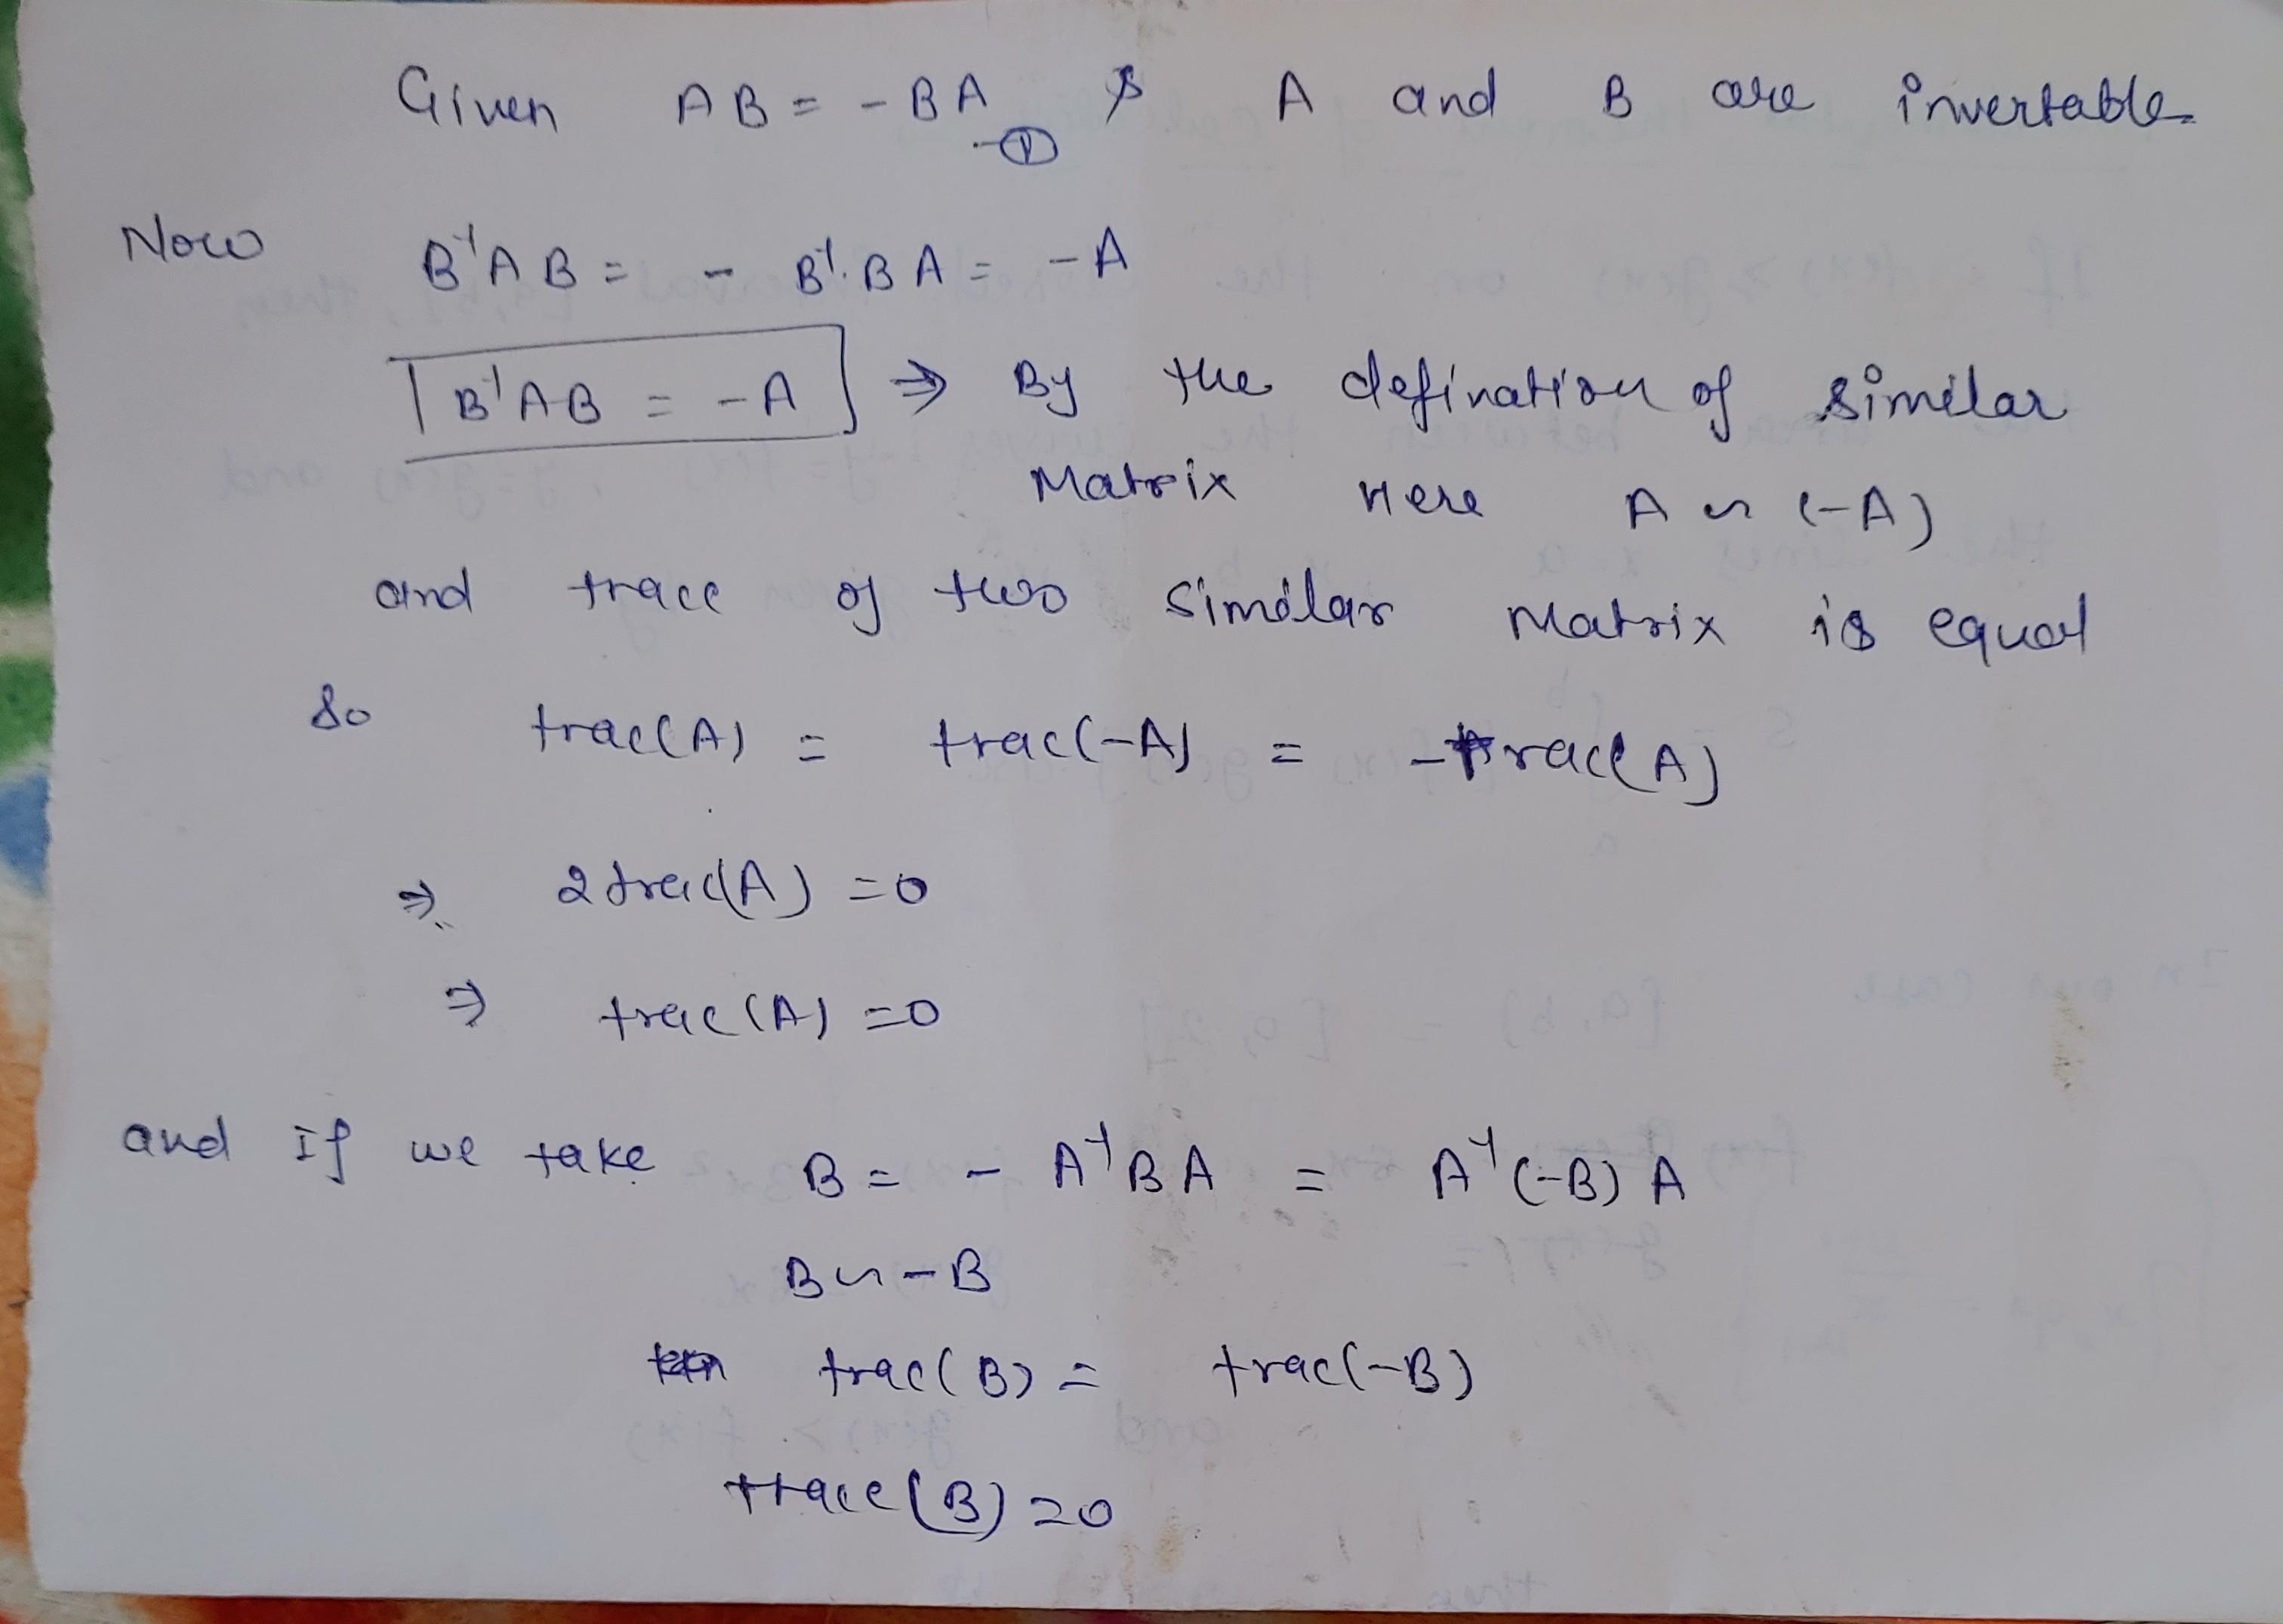 Given AB = -BA & A and B are invertable
-①
Now B⁻¹AB = - B⁻¹.BA = -A
B⁻¹AB = -A ⇒ By the defination of similar
Matrix Here A ~ (-A)
and trace of two similar Matrix is equal
So trac(A) = trac(-A) = -trac(A)
⇒ 2trac(A) =0
⇒ trac(A) =0
and If we take B = - A⁻¹BA = A⁻¹(-B)A
B ~ -B
trac(B) = trac(-B)
trace(B) =0